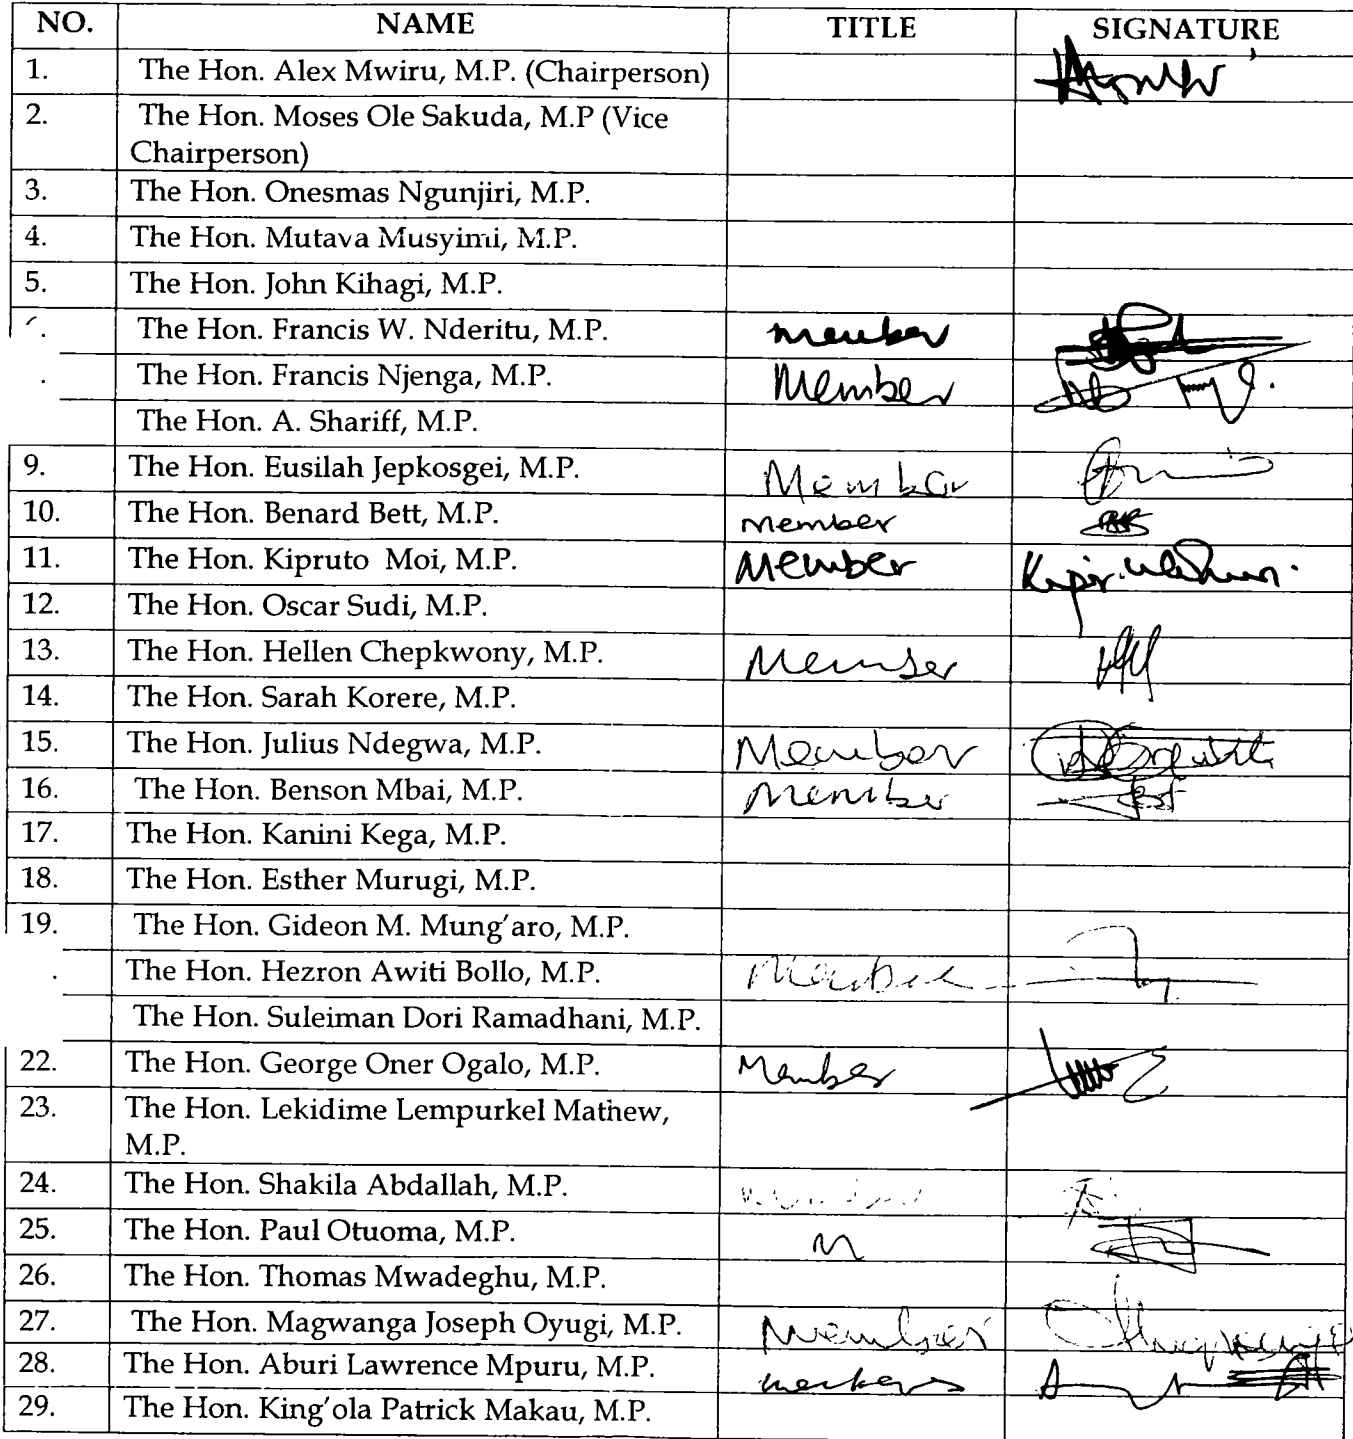 NO. NAME TITLE SIGNATURE
1. The Hon. Alex Mwiru, M.P. (Chairperson)
2. The Hon. Moses Ole Sakuda, M.P (Vice
Chairperson)
3. The Hon. Onesmas Ngunjiri, M.P.
4. The Hon. Mutava Musyimi, M.P.
5. The Hon. John Kihagi, M.P.
The Hon. Francis W. Nderitu, M.P. member
The Hon. Francis Njenga, M.P. Member
The Hon. A. Shariff, M.P.
9. The Hon. Eusilah Jepkosgei, M.P. Member
10. The Hon. Benard Bett, M.P. member
11. The Hon. Kipruto Moi, M.P. Member
12. The Hon. Oscar Sudi, M.P.
13. The Hon. Hellen Chepkwony, M.P. Member
14. The Hon. Sarah Korere, M.P.
15. The Hon. Julius Ndegwa, M.P. Member
16. The Hon. Benson Mbai, M.P. Member
17. The Hon. Kanini Kega, M.P.
18. The Hon. Esther Murugi, M.P.
19. The Hon. Gideon M. Mung'aro, M.P.
The Hon. Hezron Awiti Bollo, M.P. Member
The Hon. Suleiman Dori Ramadhani, M.P.
22. The Hon. George Oner Ogalo, M.P. Member
23. The Hon. Lekidime Lempurkel Mathew,
M.P.
24. The Hon. Shakila Abdallah, M.P.
25. The Hon. Paul Otuoma, M.P. M
26. The Hon. Thomas Mwadeghu, M.P.
27. The Hon. Magwanga Joseph Oyugi, M.P. Member
28. The Hon. Aburi Lawrence Mpuru, M.P.
29. The Hon. King'ola Patrick Makau, M.P.